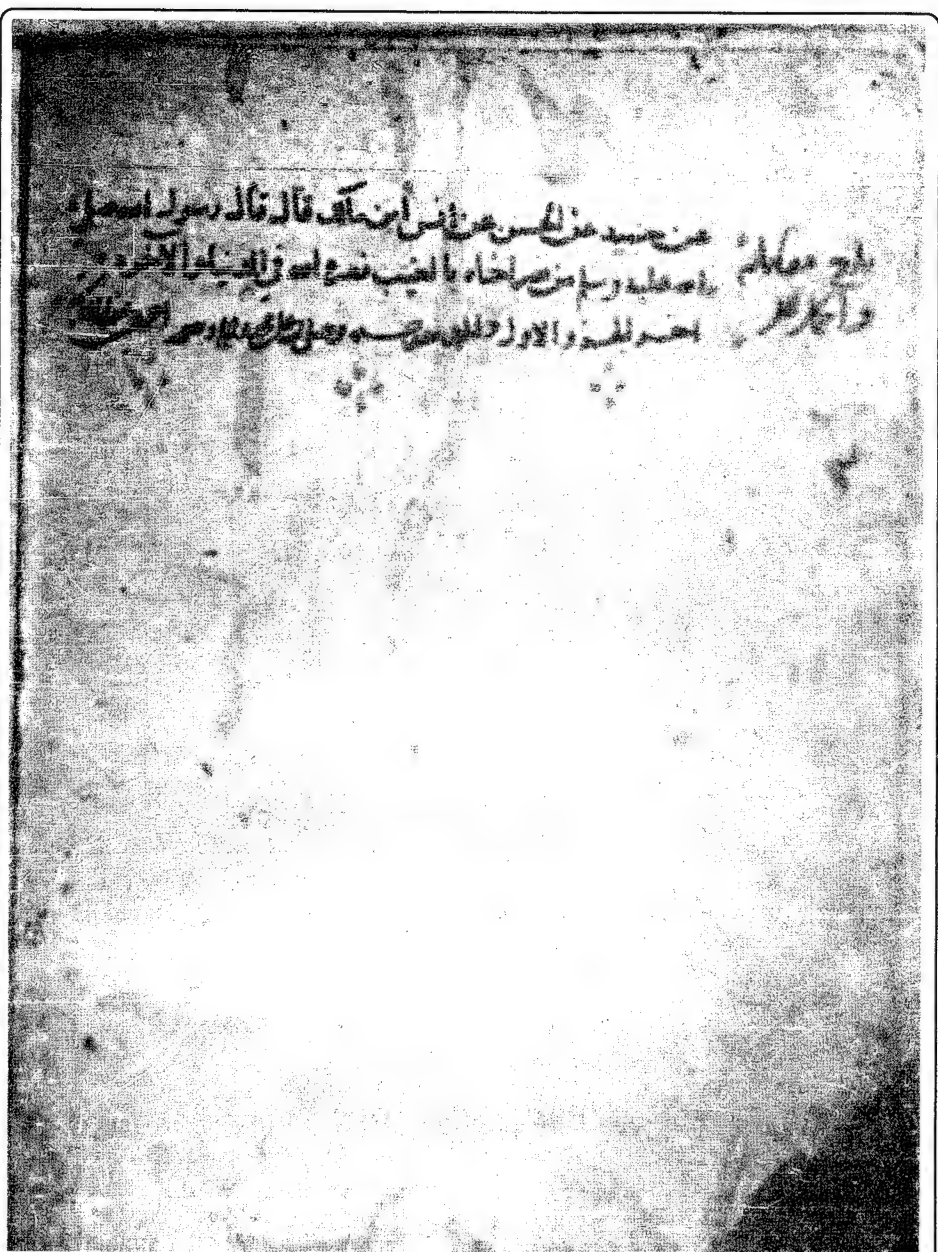 عن حميد عن الحسن عن أنس ابن مالك قال قال رسول الله صلى
الله عليه وسلم من نصر اخاه بالغيب نصره الله في الدنيا والاخره
اخر الجزء الاول والحمد لله وحده وصلى
بلغ مقابلة